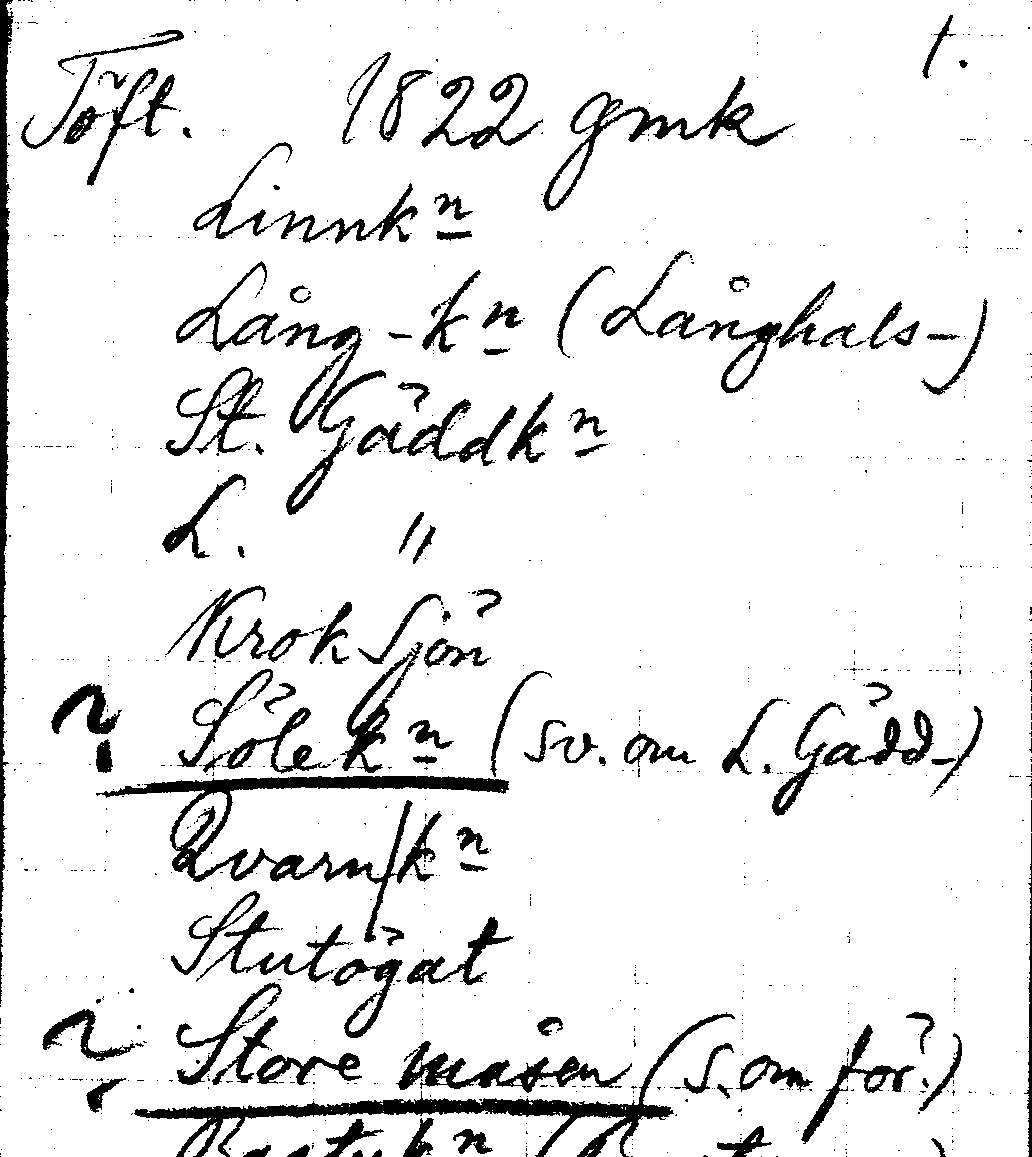 1.
Töft. 1822 gmk
Linnkn
Lång-kn (Långhals-)
St. Gäddkn
L. "
Kroksjön
? Sölekn (sv. om L. Gädd-)
Qvarn/kn
Stutögat
? Store måsen (s. om för.)